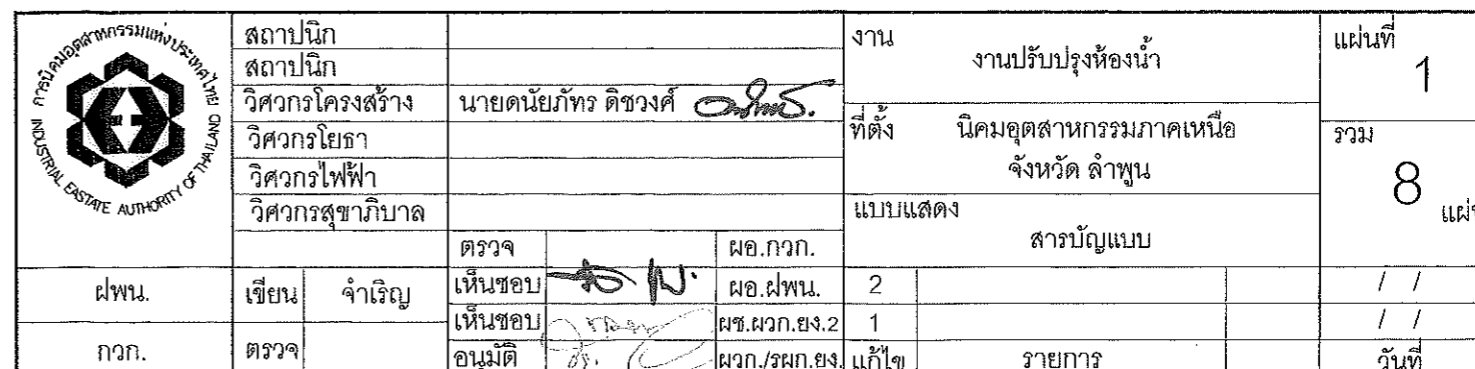 การนิคมอุตสาหกรรมแห่งประเทศไทย
INDUSTRIAL EASTATE AUTHORITY OF THAILAND
สถาปนิก
สถาปนิก
วิศวกรโครงสร้าง นายดนัยภัทร ดิชวงศ์
วิศวกรโยธา
วิศวกรไฟฟ้า
วิศวกรสุขาภิบาล
งาน งานปรับปรุงห้องน้ำ
ที่ตั้ง นิคมอุตสาหกรรมภาคเหนือ
จังหวัด ลำพูน
แบบแสดง
สารบัญแบบ
แผ่นที่
1
รวม
8 แผ่น
ตรวจ ผอ.กวก.
ฝพน. เขียน จำเริญ เห็นชอบ ผอ.ฝพน. 2 / /
เห็นชอบ ผช.ผวก.ยง.2 1 / /
กวก. ตรวจ อนุมัติ ผวก./รผก.ยง. แก้ไข รายการ วันที่